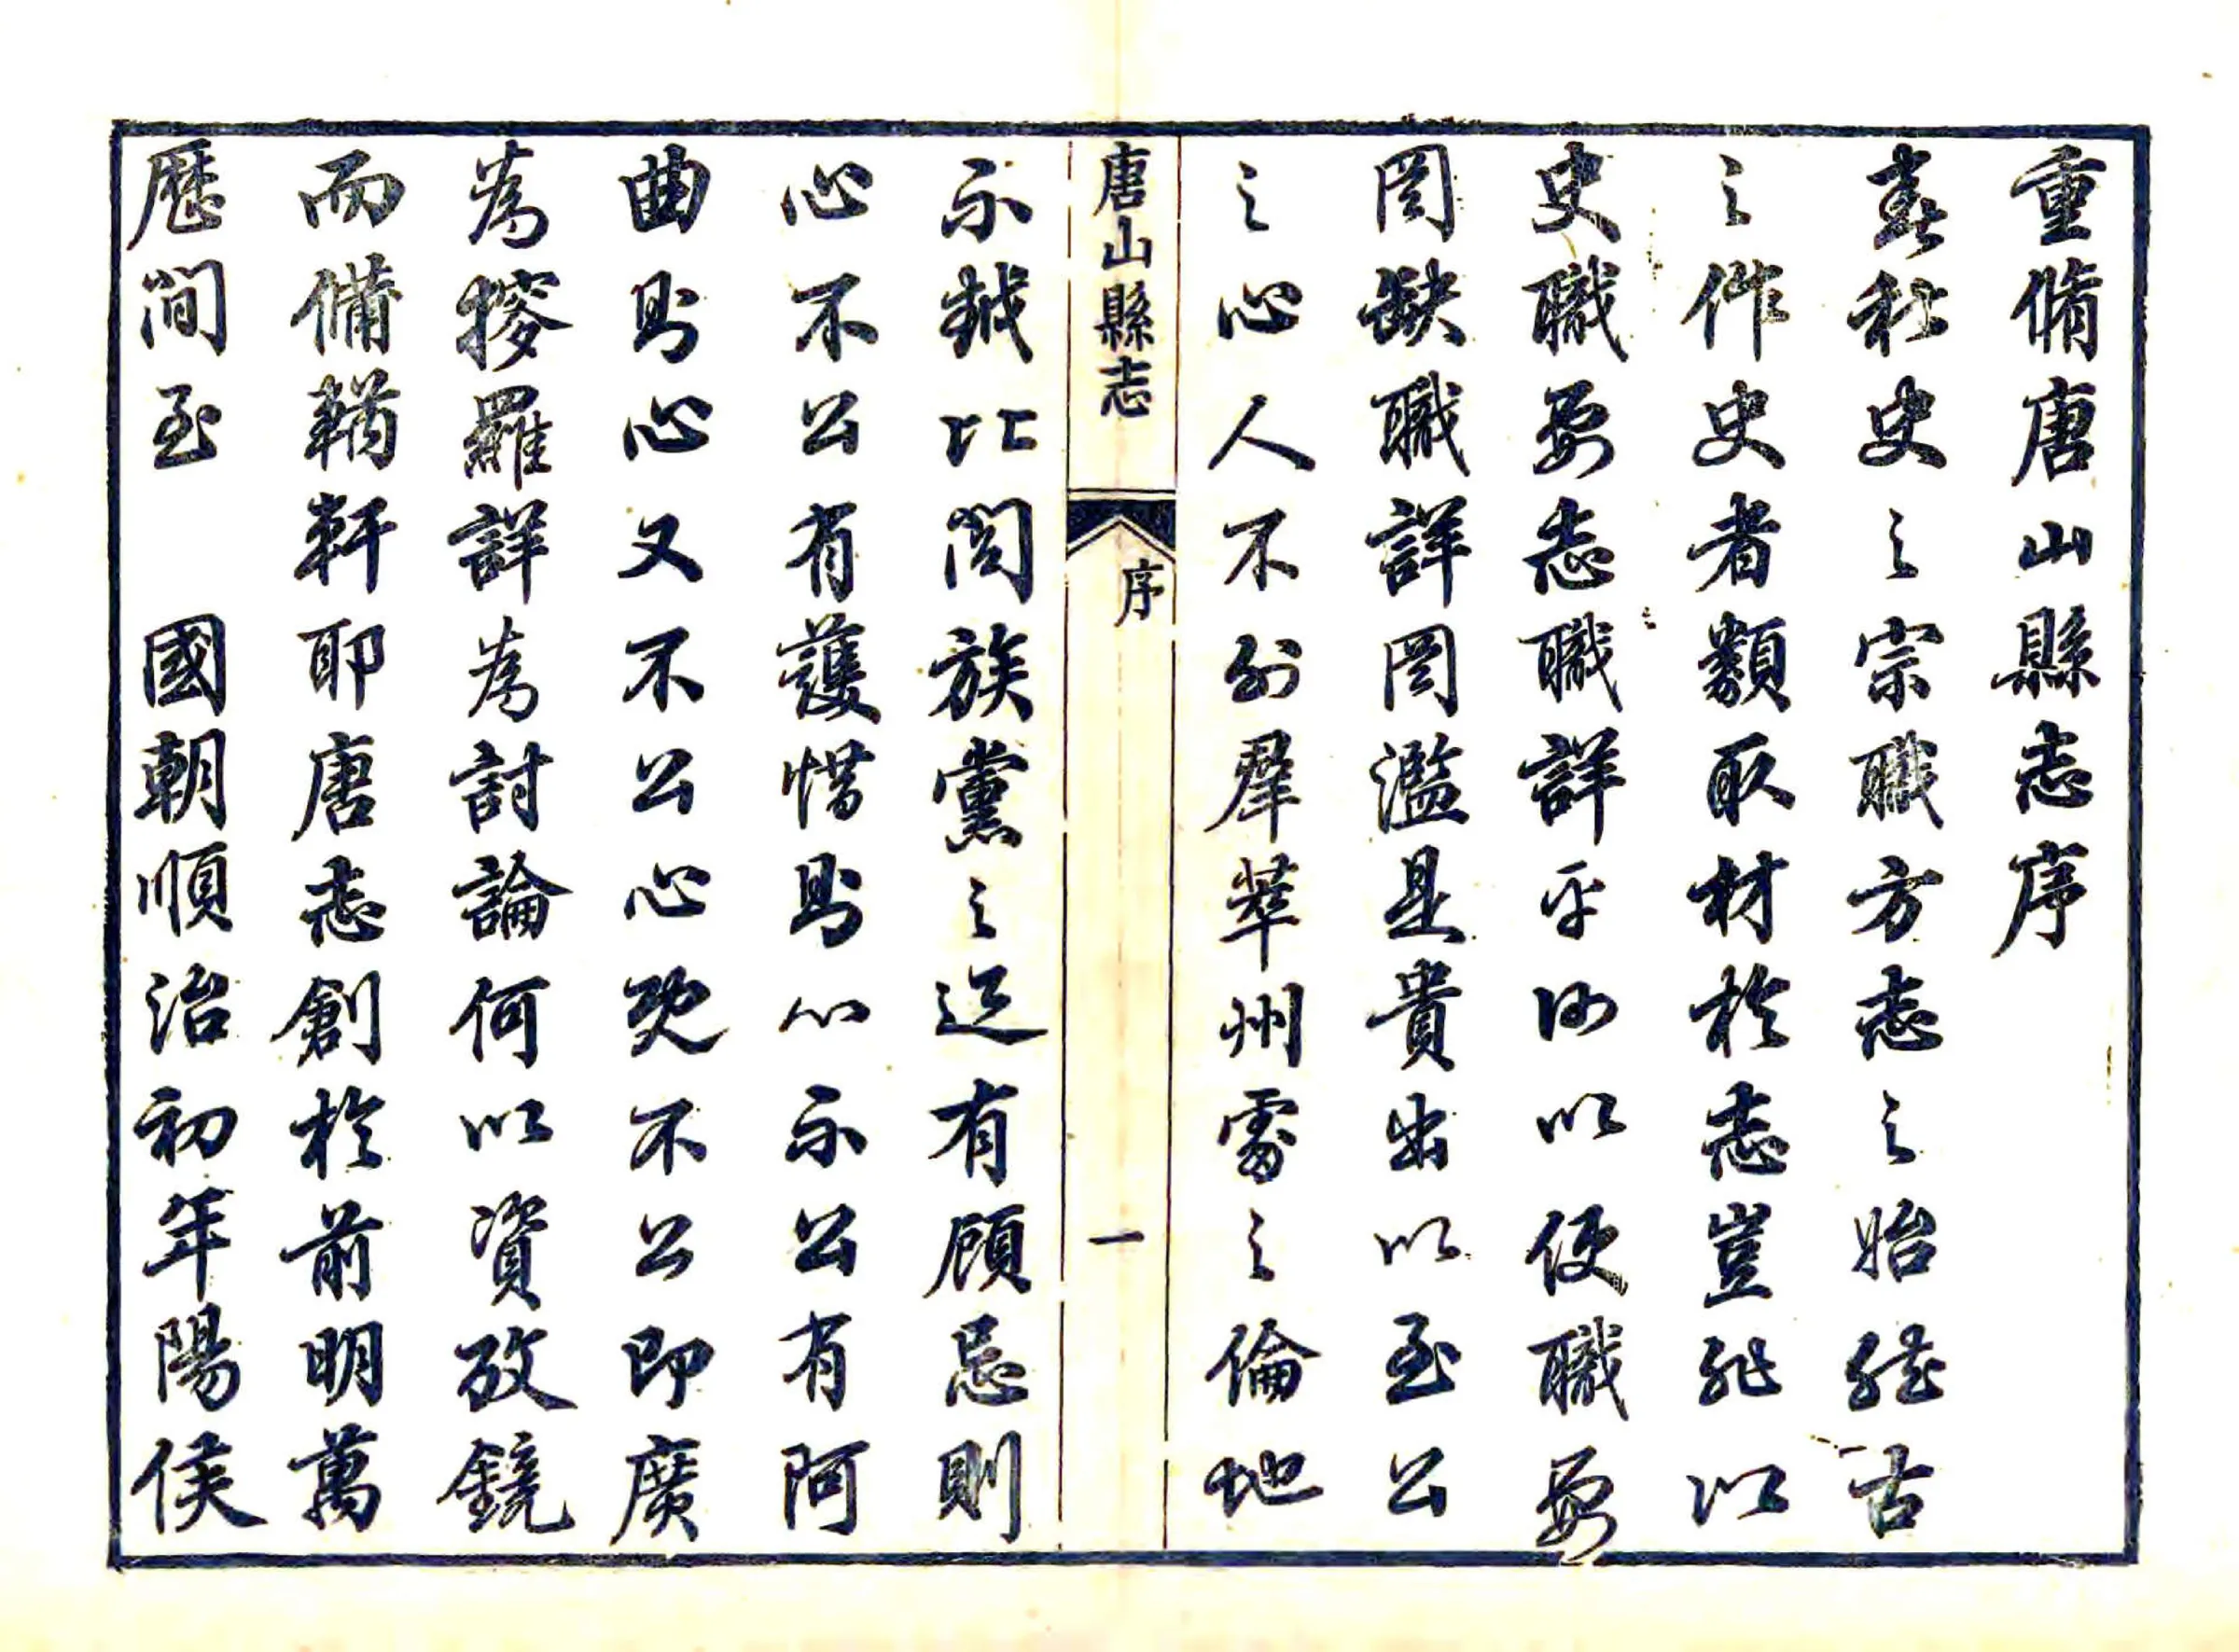 重脩唐山縣志序
春秋史之宗職方志之始然古
之作史者類取材於志豈非以
史職要志職詳乎網以便職要
罔缺職詳罔濫是貴出以至公
之心人不別群萃州處之倫地
唐山縣志
序
一
不越比閭族黨之近有顧忌則
心不公有護惜則心不公有阿
曲則心又不公心既不公即廣
為搜羅詳為討論何以資攷鏡
而備輶軒耶唐志創於前明萬
歷間至 國朝順治初年陽侯